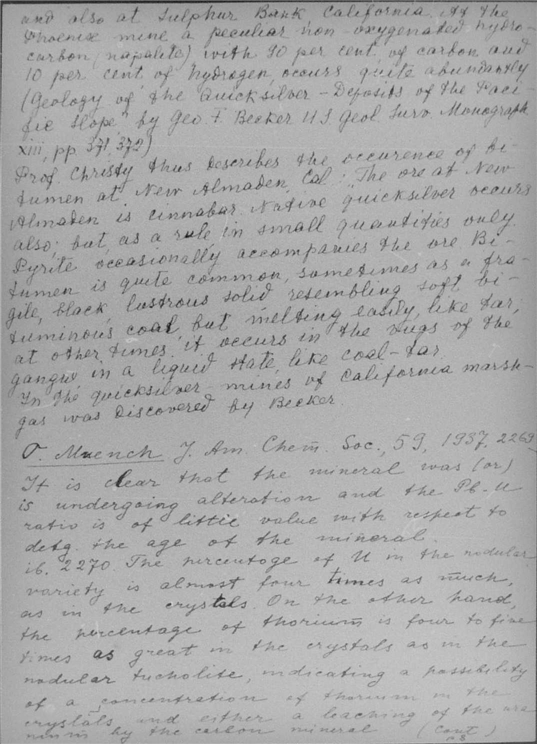 and also at Sulphur Bank California. At the
Phoenix mine a peculiar non-oxygenated hydro-
carbon, napalite) with 90 per cent. of carbon and
10 per cent of hydrogen, occurs quite abundantly
(Geology of the Quicksilver-Deposits of the Paci-
fic Slope" by Geo. F. Becker U S Geol Surv. Monograph
xiii, pp. 371, 372)
Prof. Christy thus describes the occurence of bi-
tumen at New Almaden, Cal: "The ore at New
Almaden is cinnabar. Native quicksilver occurs
also; but, as a rule in small quantities only.
Pyrite occasionally accompanies the ore Bi-
tumen is quite common, sometimes as a fra-
gile, black lustrous solid resembling soft bi-
tuminous coal, but melting easily, like tar,
at other times, it occurs in the vugs of the
gangue in a liquid state, like coal-tar.
In the quicksilver mines of California marsh-
gas was discovered by Becker.
O. Muench J. Am. Chem. Soc., 59, 1937, 2269.
It is clear that the mineral was (or)
is undergoing alteration and the Pb-U
ratio is of little value with respect to
detg. the age of the mineral.
ib. 2270 The percentage of U in the nodular
variety is almost four times as much,
as in the crystals. On the other hand,
the percentage of thorium is four to five
times as great in the crystals as in the
nodular tucholite, indicating a possibility
of a concentration of thorium in the
crystals and either a leaching of the ura
nium by the carbon mineral (cont